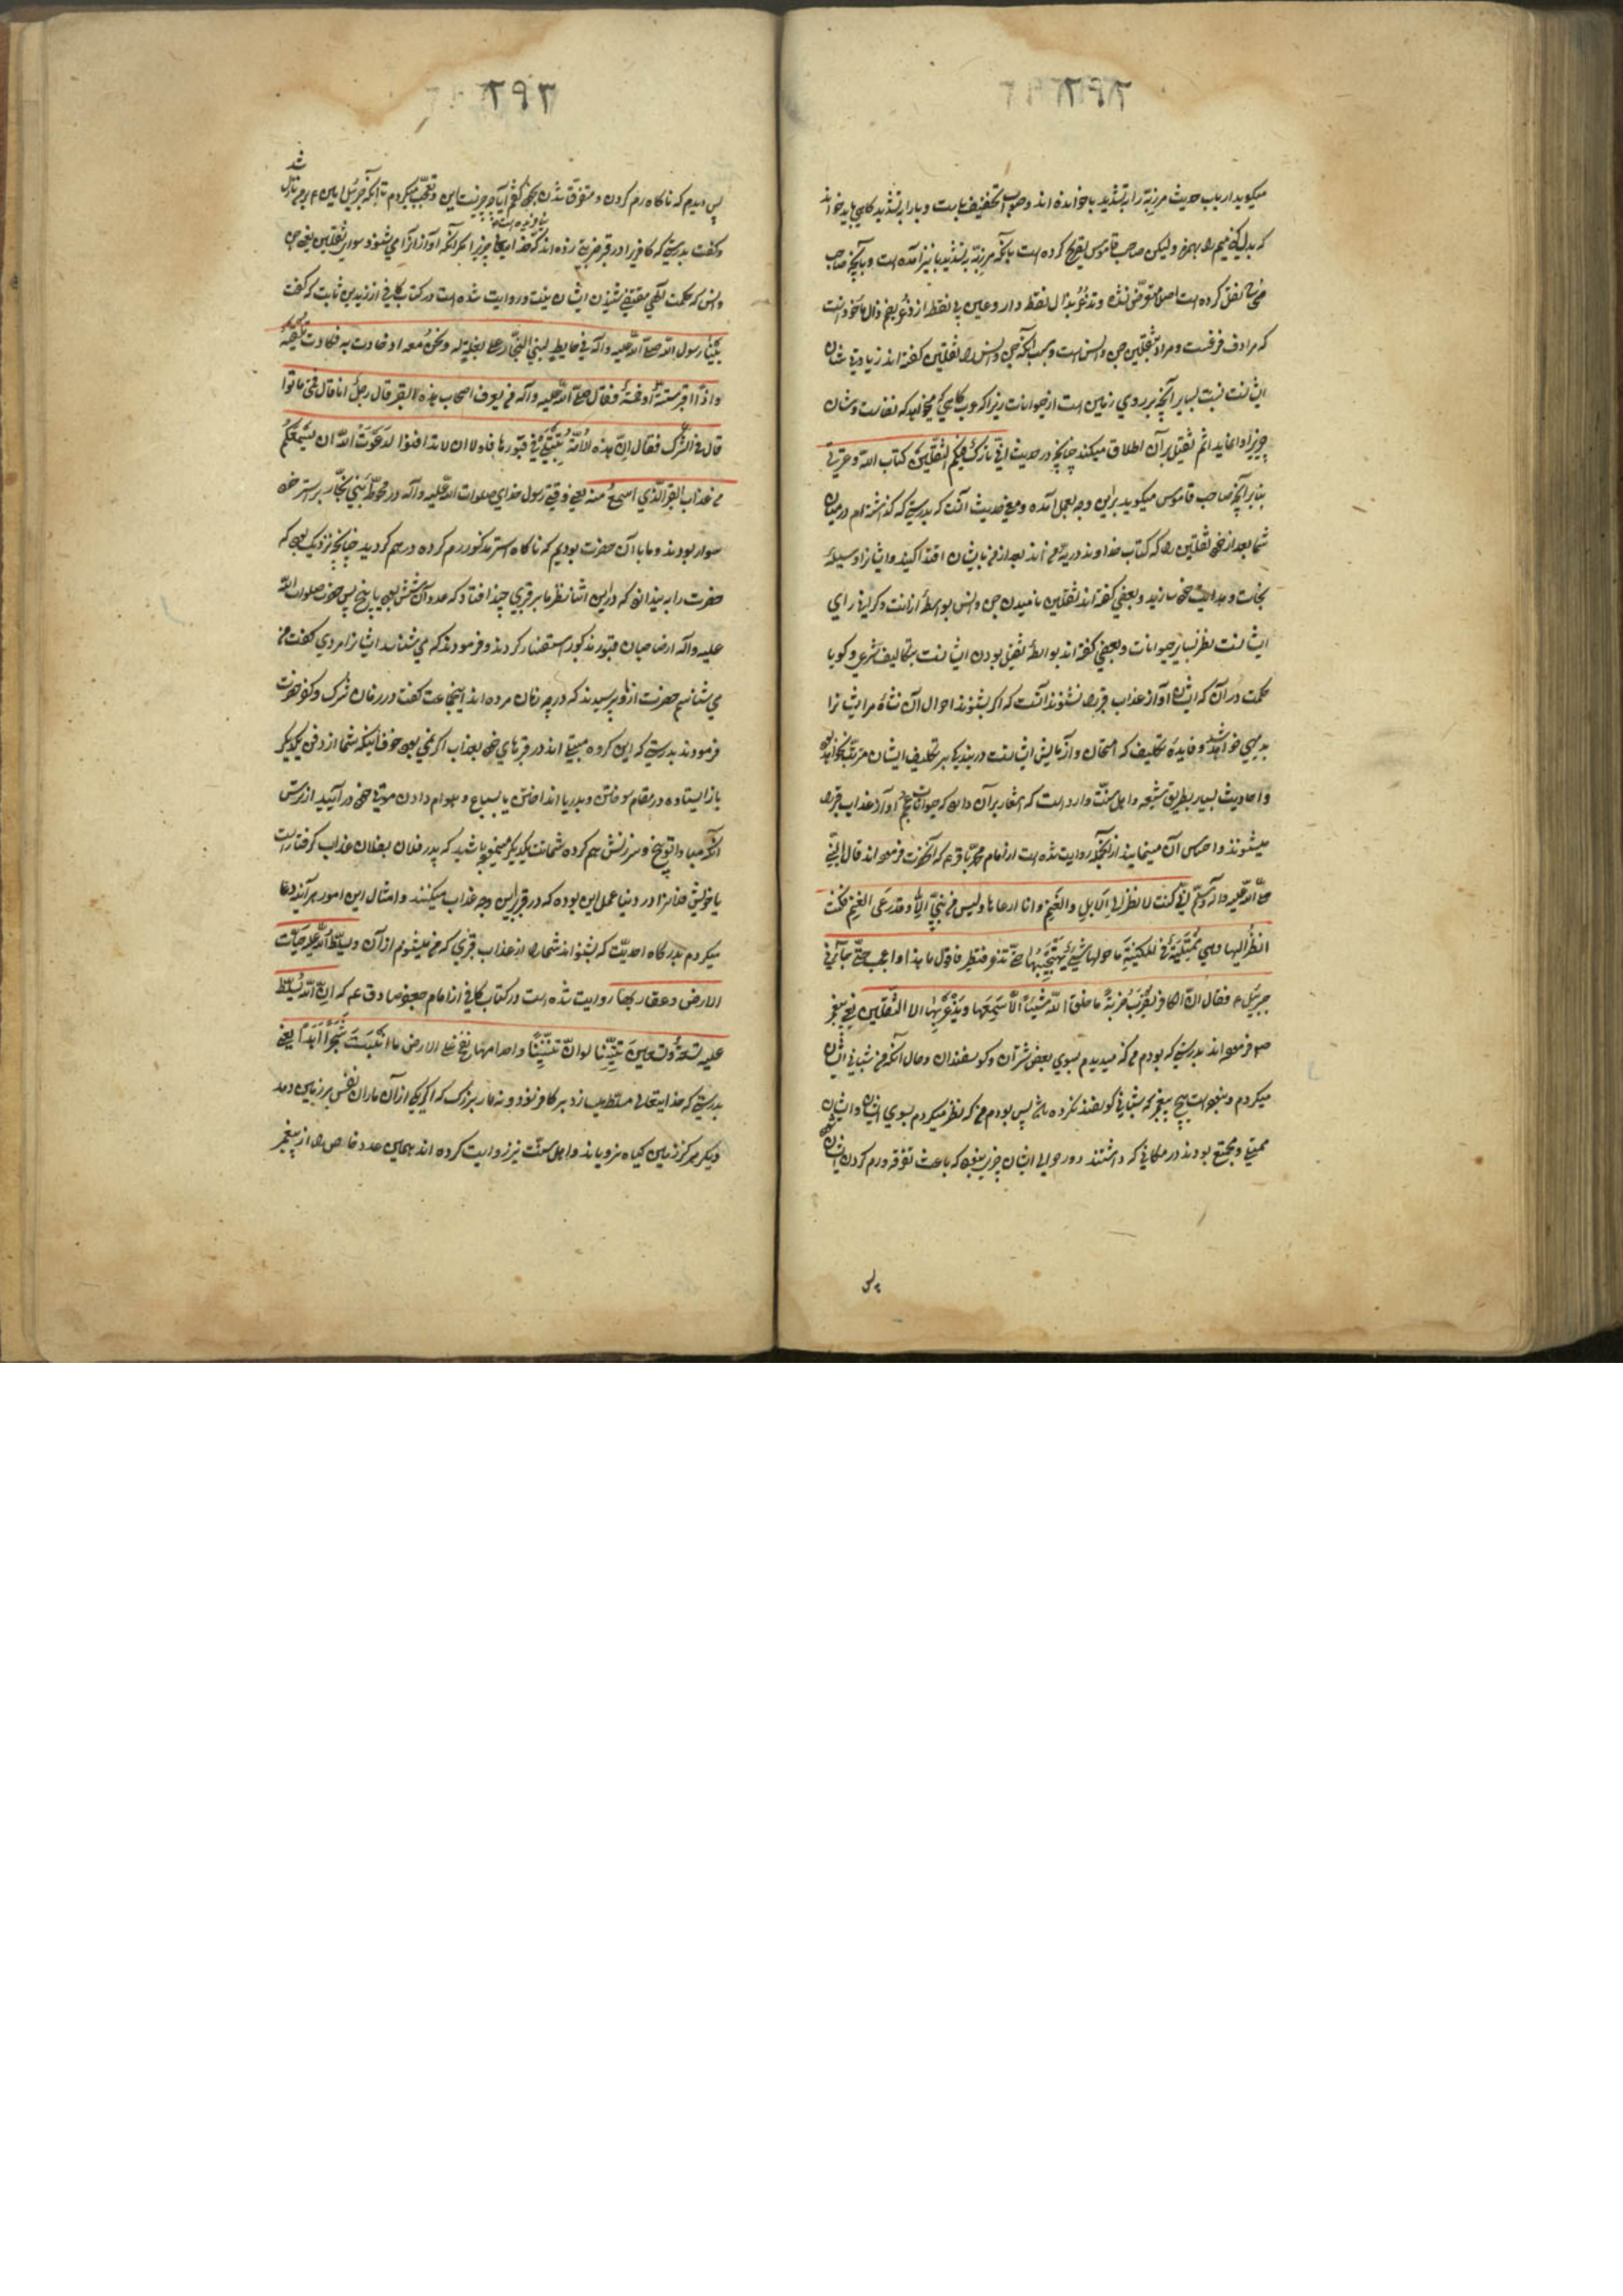 ۲۹۲
میکوید ارباب حدیث مرزبة را بتشدید با خوانده اند وصواب تخفیف باست و با را بتشدید کاهی باید خواند
که بدل کنیم میم را بهمزه ولیکن صاحب قاموس تصریح کرده است بآنکه مرزبّة بتشدید با نیز آمده است و بآنچه صاحب
نقل کرده است اصلا متعرّض نشده وتذعر بذال نقطه دار وعین بی نقطه از ذعر بضم ذال ماخوذ است
که مرادف فزعست و مراد بثقلین جن وانس است و بسبب آنکه جن وانس را ثقلین کفته اند زیادتی شان
ایشانست نسبت بسایر آنچه بر روی زمین است از حیوانات زیرا که عرب کاهی که میخواهد که نفاست و شان
چیزیرا وانماید اسم ثقیل بر آن اطلاق میکند چنانچه در حدیث انّی تارک فیکم الثقلین کتاب الله وعترتی
بنابر آنچه صاحب قاموس میکوید براین وجه بعمل آمده ومعنی حدیث آنست که بدرستی که کذاشته ام در میان
شما بعد از خود ثقلین را که کتاب خداوند و ذریّه من اند بعد از من بایشان اقتدا کنید وایشانرا وسیلهٔ
نجات و هدایت خود سازید و بعضی کفته اند ثقلین نامیدن جن وانس بواسطهٔ رزانت و کرانی رای
ایشانست نظر بسایر حیوانات و بعضی کفته اند بواسطهٔ ثقیل بودن ایشانست بتکالیف شرعی و کویا
حکمت در آن که ایشان آواز عذاب قبر را نشنوند آنست که اگر بشنوند احوال آن نشاة مر ایشانرا
بدیهی خواهد شد و فایدهٔ تکلیف که امتحان و آزمایش ایشانست در بندیکها بر تکلیف ایشان مترتب نخواهد بود
و احادیث بسیار بطریق شیعه و اهل سنّت وارد است که اشعار بر آن دارد که حیوانات عجم آواز عذاب قبر را
میشنوند و احساس آن مینمایند از آنجمله روایت شده است از امام محمد باقر ع که آنحضرت فرموده اند قال النبی
صلّی اللّه علیه وآله وسلّم انّی کنت لانظر الی الابل والغنم وانا ارعاها ولیس من نبیّ الّا وقد رعی الغنم فکنت
انظر الیها وهی متمکّنة فی المکینة ما حولها شیئ یهیّجها حتّی تذعر فتطیر فاقول ما هذا واعجب حتّی جاءنی
جبرئیل ع فقال انّ الکافر یضرب ضربة ما خلق اللّه شیئا الّا سمعها ویذعر بها الا الثقلین یعنی پیغمبر
ص فرموده اند بدرستی که بودم من که میدیدم بسوی بعض شتران و کوسفندان و حال آنکه من شبانی ایشان
میکردم و نبوده است هیچ پیغمبر که شبانی کوسفند نکرده باشد پس بودم من که نظر میکردم بسوی ایشان وایشان
ممتلی و مجتمع بودند در مکانی که داشتند و در حوالی ایشان چیزی نبود که باعث تفرقه و رم کردن ایشان شود
پس
۲۹۳
پس دیدم که ناکاه رم کردن و متفرق شدن پس کفتم آیا چه چیزست این و تعجب میکردم تا آنکه جبرئیل امین ع بر من نازل شد
وکفت بدرستی که کافر را در قبر ضربتی زده اند که خدا هیچ چیز را نیافریده است مکر آنکه آواز آنرا می شنود سوای ثقلین یعنی جن
وانس که حکمت الهی مقتضی شنیدن ایشان نیست و روایت شده است در کتاب کافی از زید بن ثابت که کفت
بینا رسول اللّه صلّی اللّه علیه وآله فی حایط لبنی النجّار علی بغلة له ونحن معه اذ حادت به فکادت تلقیه
واذا اقبر ستّة او خمسة فقال صلّی اللّه علیه وآله من یعرف اصحاب هذه الاقبر قال رجل انا قال فمتی ماتوا
قال فی الشّرک فقال انّ هذه الامّة تبتلی فی قبورها فلولا ان لا تدافنوا لدعوت اللّه ان یسمعکم
من عذاب القبر الّذی اسمع منه یعنی وقتی رسول خدای صلوات اللّه علیه وآله در محوطهٔ بنی نجّار بر استر خود
سوار بودند و ما با آن حضرت بودیم که ناکاه استر مذکور رم کرده در هم کردید چنانچه نزدیک بود که
حضرت را بیندازد که دراین اثنا نظر ما بر قبری چند افتاد که عدد آن شش بود یا پنج پس حضرت صلوات اللّه
علیه وآله از صاحبان قبور مذکور استفسار کردند و فرمودند که می شناسد ایشانرا مردی کفت من
می شناسم حضرت از او پرسیدند که در چه زمان مرده اند اینجماعت کفت در زمان شرک و کفر حضرت
فرمودند بدرستی که این کروه مبتلی اند در قبرهای خود بعذاب اگر نمی بود خوف اینکه شما از دفن یکدیکر
باز ایستاده در مقام سوختن و بدریا انداختن یا بسباع و هوام دادن موتی خود در آیید از ترس
آنکه مبادا توبیخ و سرزنش هم کرده شماتت یکدیکر مینموده باشید که پدر فلان بفلان عذاب کرفتار است
یا خویش فلانرا در دنیا عمل این بوده که در قبر باین وجه عذاب میکنند و امثال این امور هر آینه دعا
میکردم بدرکاه احدیّت که بشنواند شما را از عذاب قبری که من میشنوم از آن ویسلّط اللّه علیه حیّات
الارض وعقاربها روایت شده است در کتاب کافی از امام جعفر صادق ع که انّ اللّه یسلّط
علیه تسعة وتسعین تنّینا لو انّ تنّینا واحدا منها نفخ علی الارض ما انبتت شجرا ابدا یعنی
بدرستی که خدایتعالی مسلّط میسازد بر کافر نود و نه مار بزرک که اگر یکی از آن ماران نفس بر زمین دمد
دیکر هرکز زمین کیاه نرویاند و اهل سنّت نیز روایت کرده اند همین عدد خاص را از پیغمبر